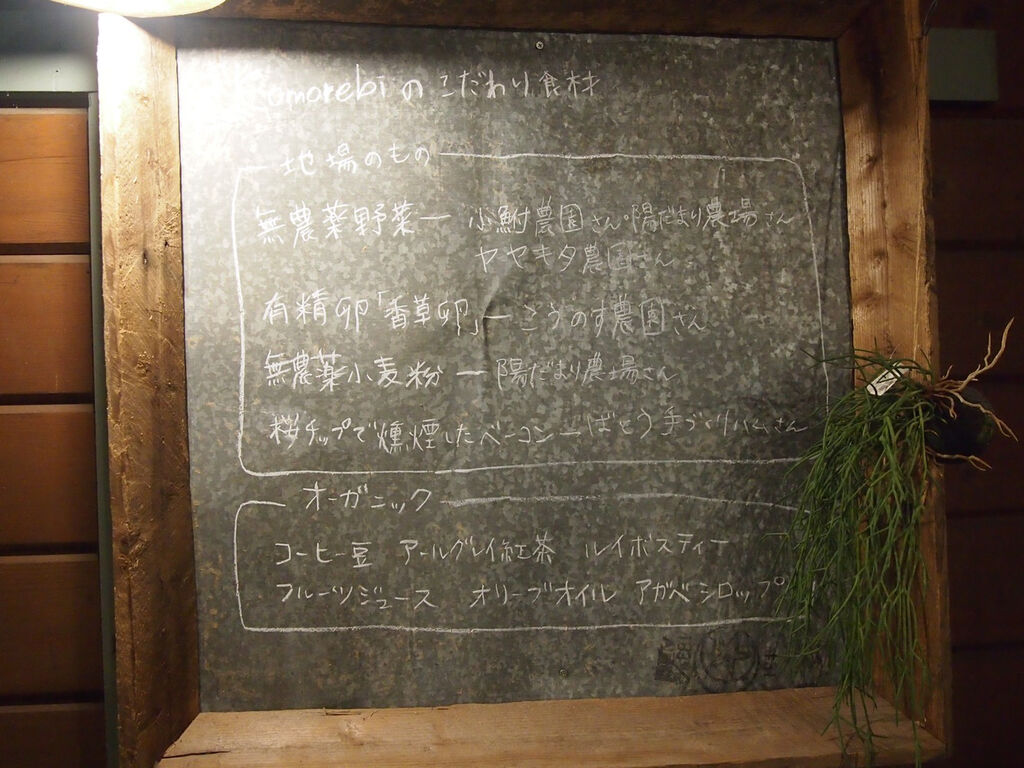 omorebiのこだわり食材
地場のもの
無農薬野菜ー 小鮒農園さん・陽だまり農場さん
ヤセキタ農園さん
有精卵「香草卵」ーこうのす農園さん
無農薬小麦粉 ー 陽だまり農場さん
桜チップで燻煙したベーコンーばとう手づくりハムさん
オーガニック
コーヒー豆 アールグレイ紅茶 ルイボスティー
フルーツジュース オリーブオイル アガベシロップ